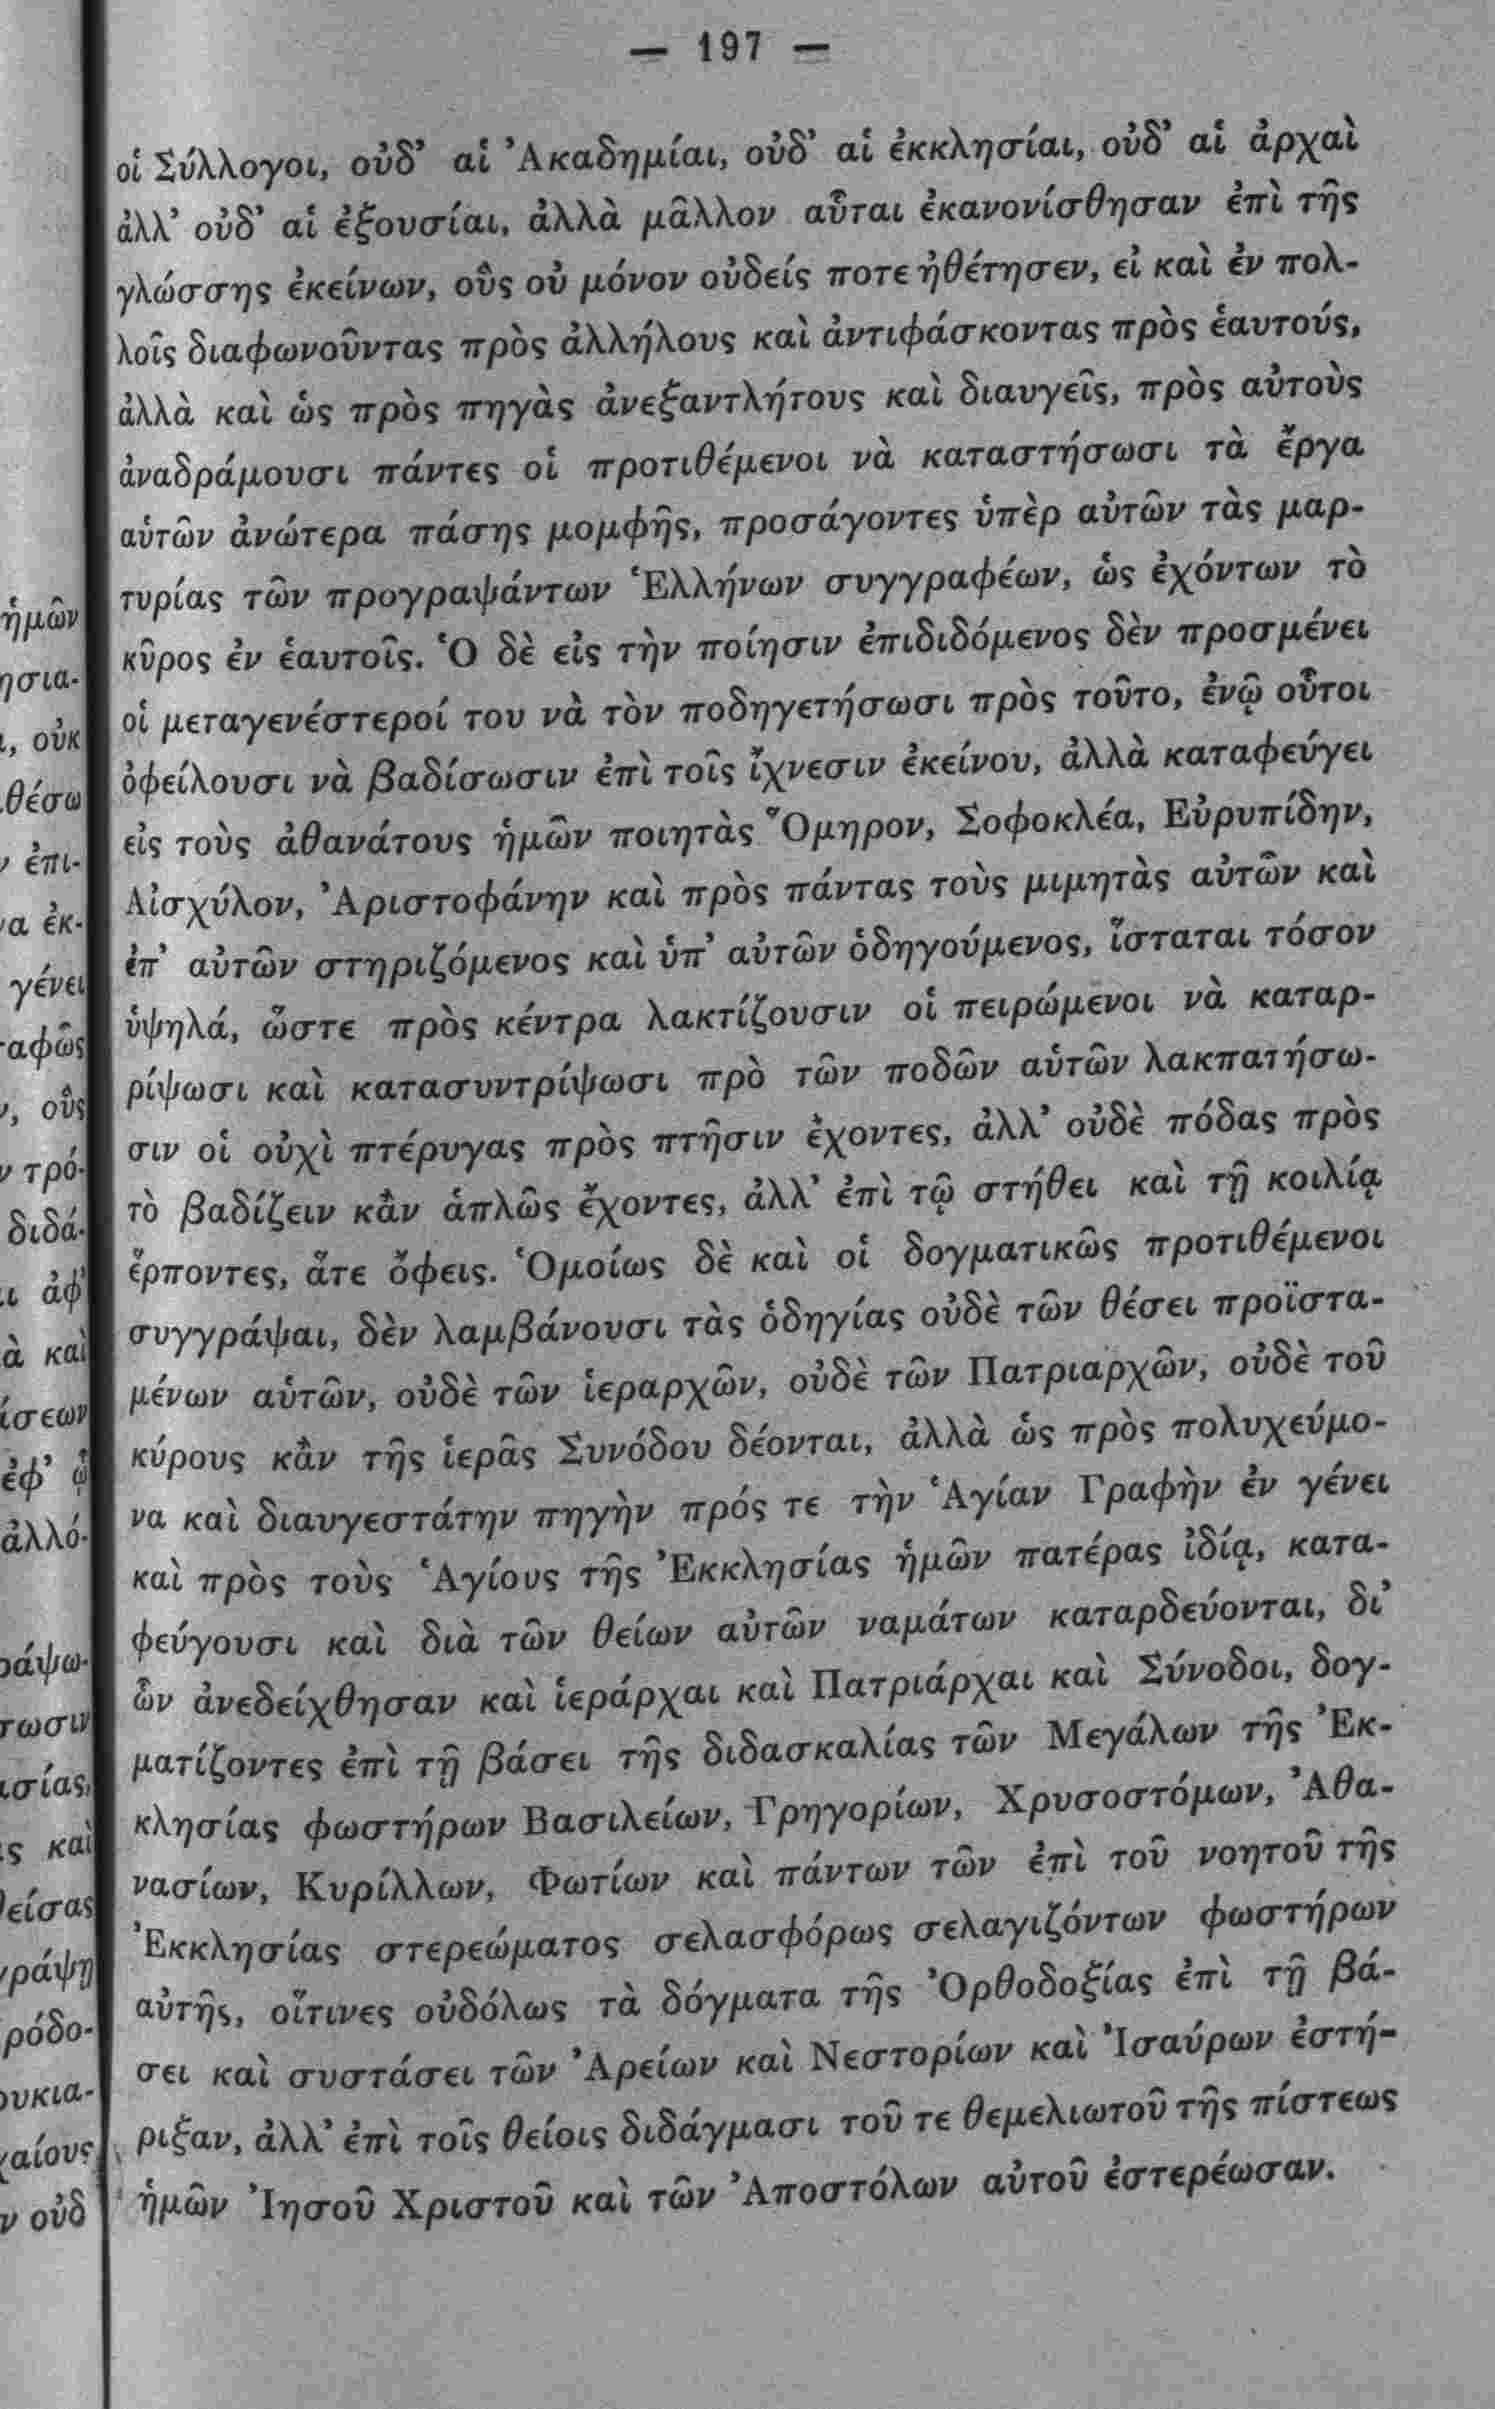 — 197 —
οἱ Σύλλογοι, οὐδ' αἱ Ἀκαδημίαι, οὐδ' αἱ ἐκκλησίαι, οὐδ' αἱ ἀρχαὶ
ἀλλ' οὐδ' αἱ ἐξουσίαι, ἀλλὰ μᾶλλον αὗται ἐκανονίσθησαν ἐπὶ τῆς
γλώσσης ἐκείνων, οὓς οὐ μόνον οὐδείς ποτε ἠθέτησεν, εἰ καὶ ἐν πολ-
λοῖς διαφωνοῦντας πρὸς ἀλλήλους καὶ ἀντιφάσκοντας πρὸς ἑαυτούς,
ἀλλὰ καὶ ὡς πρὸς πηγὰς ἀνεξαντλήτους καὶ διαυγεῖς, πρὸς αὐτοὺς
ἀναδράμουσι πάντες οἱ προτιθέμενοι νὰ καταστήσωσι τὰ ἔργα
αὑτῶν ἀνώτερα πάσης μομφῆς, προσάγοντες ὑπὲρ αὐτῶν τὰς μαρ-
τυρίας τῶν προγραψάντων Ἑλλήνων συγγραφέων, ὡς ἐχόντων τὸ
κῦρος ἐν ἑαυτοῖς. Ὁ δὲ εἰς τὴν ποίησιν ἐπιδιδόμενος δὲν προσμένει
οἱ μεταγενέστεροί του νὰ τὸν ποδηγετήσωσι πρὸς τοῦτο, ἐνῷ οὗτοι
ὀφείλουσι νὰ βαδίσωσιν ἐπὶ τοῖς ἴχνεσιν ἐκείνου, ἀλλὰ καταφεύγει
εἰς τοὺς ἀθανάτους ἡμῶν ποιητὰς Ὅμηρον, Σοφοκλέα, Εὐρυπίδην,
Αἰσχύλον, Ἀριστοφάνην καὶ πρὸς πάντας τοὺς μιμητὰς αὐτῶν καὶ
ἐπ' αὐτῶν στηριζόμενος καὶ ὑπ' αὐτῶν ὁδηγούμενος, ἵσταται τόσον
ὑψηλά, ὥστε πρὸς κέντρα λακτίζουσιν οἱ πειρώμενοι νὰ καταρ-
ρίψωσι καὶ κατασυντρίψωσι πρὸ τῶν ποδῶν αὑτῶν λακπατήσω-
σιν οἱ οὐχὶ πτέρυγας πρὸς πτῆσιν ἔχοντες, ἀλλ' οὐδὲ πόδας πρὸς
τὸ βαδίζειν κἂν ἁπλῶς ἔχοντες, ἀλλ' ἐπὶ τῷ στήθει καὶ τῇ κοιλίᾳ
ἕρποντες, ἅτε ὄφεις. Ὁμοίως δὲ καὶ οἱ δογματικῶς προτιθέμενοι
συγγράψαι, δὲν λαμβάνουσι τὰς ὁδηγίας οὐδὲ τῶν θέσει προϊστα-
μένων αὑτῶν, οὐδὲ τῶν ἱεραρχῶν, οὐδὲ τῶν Πατριαρχῶν, οὐδὲ τοῦ
κύρους κἂν τῆς ἱερᾶς Συνόδου δέονται, ἀλλὰ ὡς πρὸς πολυχεύμο-
να καὶ διαυγεστάτην πηγὴν πρός τε τὴν Ἁγίαν Γραφὴν ἐν γένει
καὶ πρὸς τοὺς Ἁγίους τῆς Ἐκκλησίας ἡμῶν πατέρας ἰδίᾳ, κατα-
φεύγουσι καὶ διὰ τῶν θείων αὐτῶν ναμάτων καταρδεύονται, δι'
ὧν ἀνεδείχθησαν καὶ ἱεράρχαι καὶ Πατριάρχαι καὶ Σύνοδοι, δογ-
ματίζοντες ἐπὶ τῇ βάσει τῆς διδασκαλίας τῶν Μεγάλων τῆς Ἐκ-
κλησίας φωστήρων Βασιλείων, Γρηγορίων, Χρυσοστόμων, Ἀθα-
νασίων, Κυρίλλων, Φωτίων καὶ πάντων τῶν ἐπὶ τοῦ νοητοῦ τῆς
Ἐκκλησίας στερεώματος σελασφόρως σελαγιζόντων φωστήρων
αὐτῆς, οἵτινες οὐδόλως τὰ δόγματα τῆς Ὀρθοδοξίας ἐπὶ τῇ βά-
σει καὶ συστάσει τῶν Ἀρείων καὶ Νεστορίων καὶ Ἰσαύρων ἐστή-
ριξαν, ἀλλ' ἐπὶ τοῖς θείοις διδάγμασι τοῦ τε θεμελιωτοῦ τῆς πίστεως
ἡμῶν Ἰησοῦ Χριστοῦ καὶ τῶν Ἀποστόλων αὐτοῦ ἐστερέωσαν.